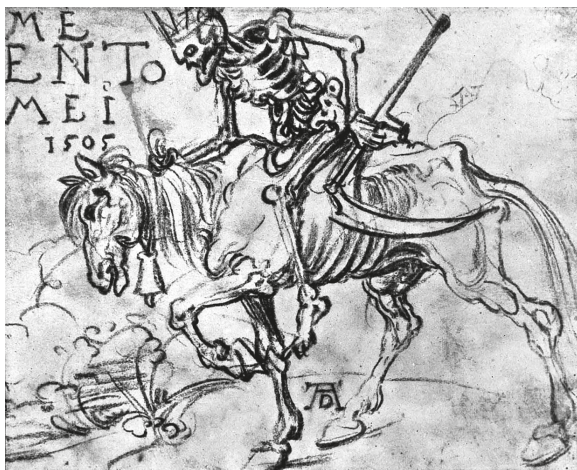 ME
ENTO
MEİ
1505
AD